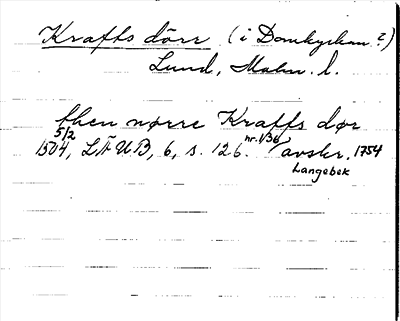 Krafts dörr (i Domkyrkan?)
Lund, Malm. l.
then nørre Kraffs dør
1504, 5/2 LÄUB, 6, s. 126. nr. 136 avskr. 1754
Langebek